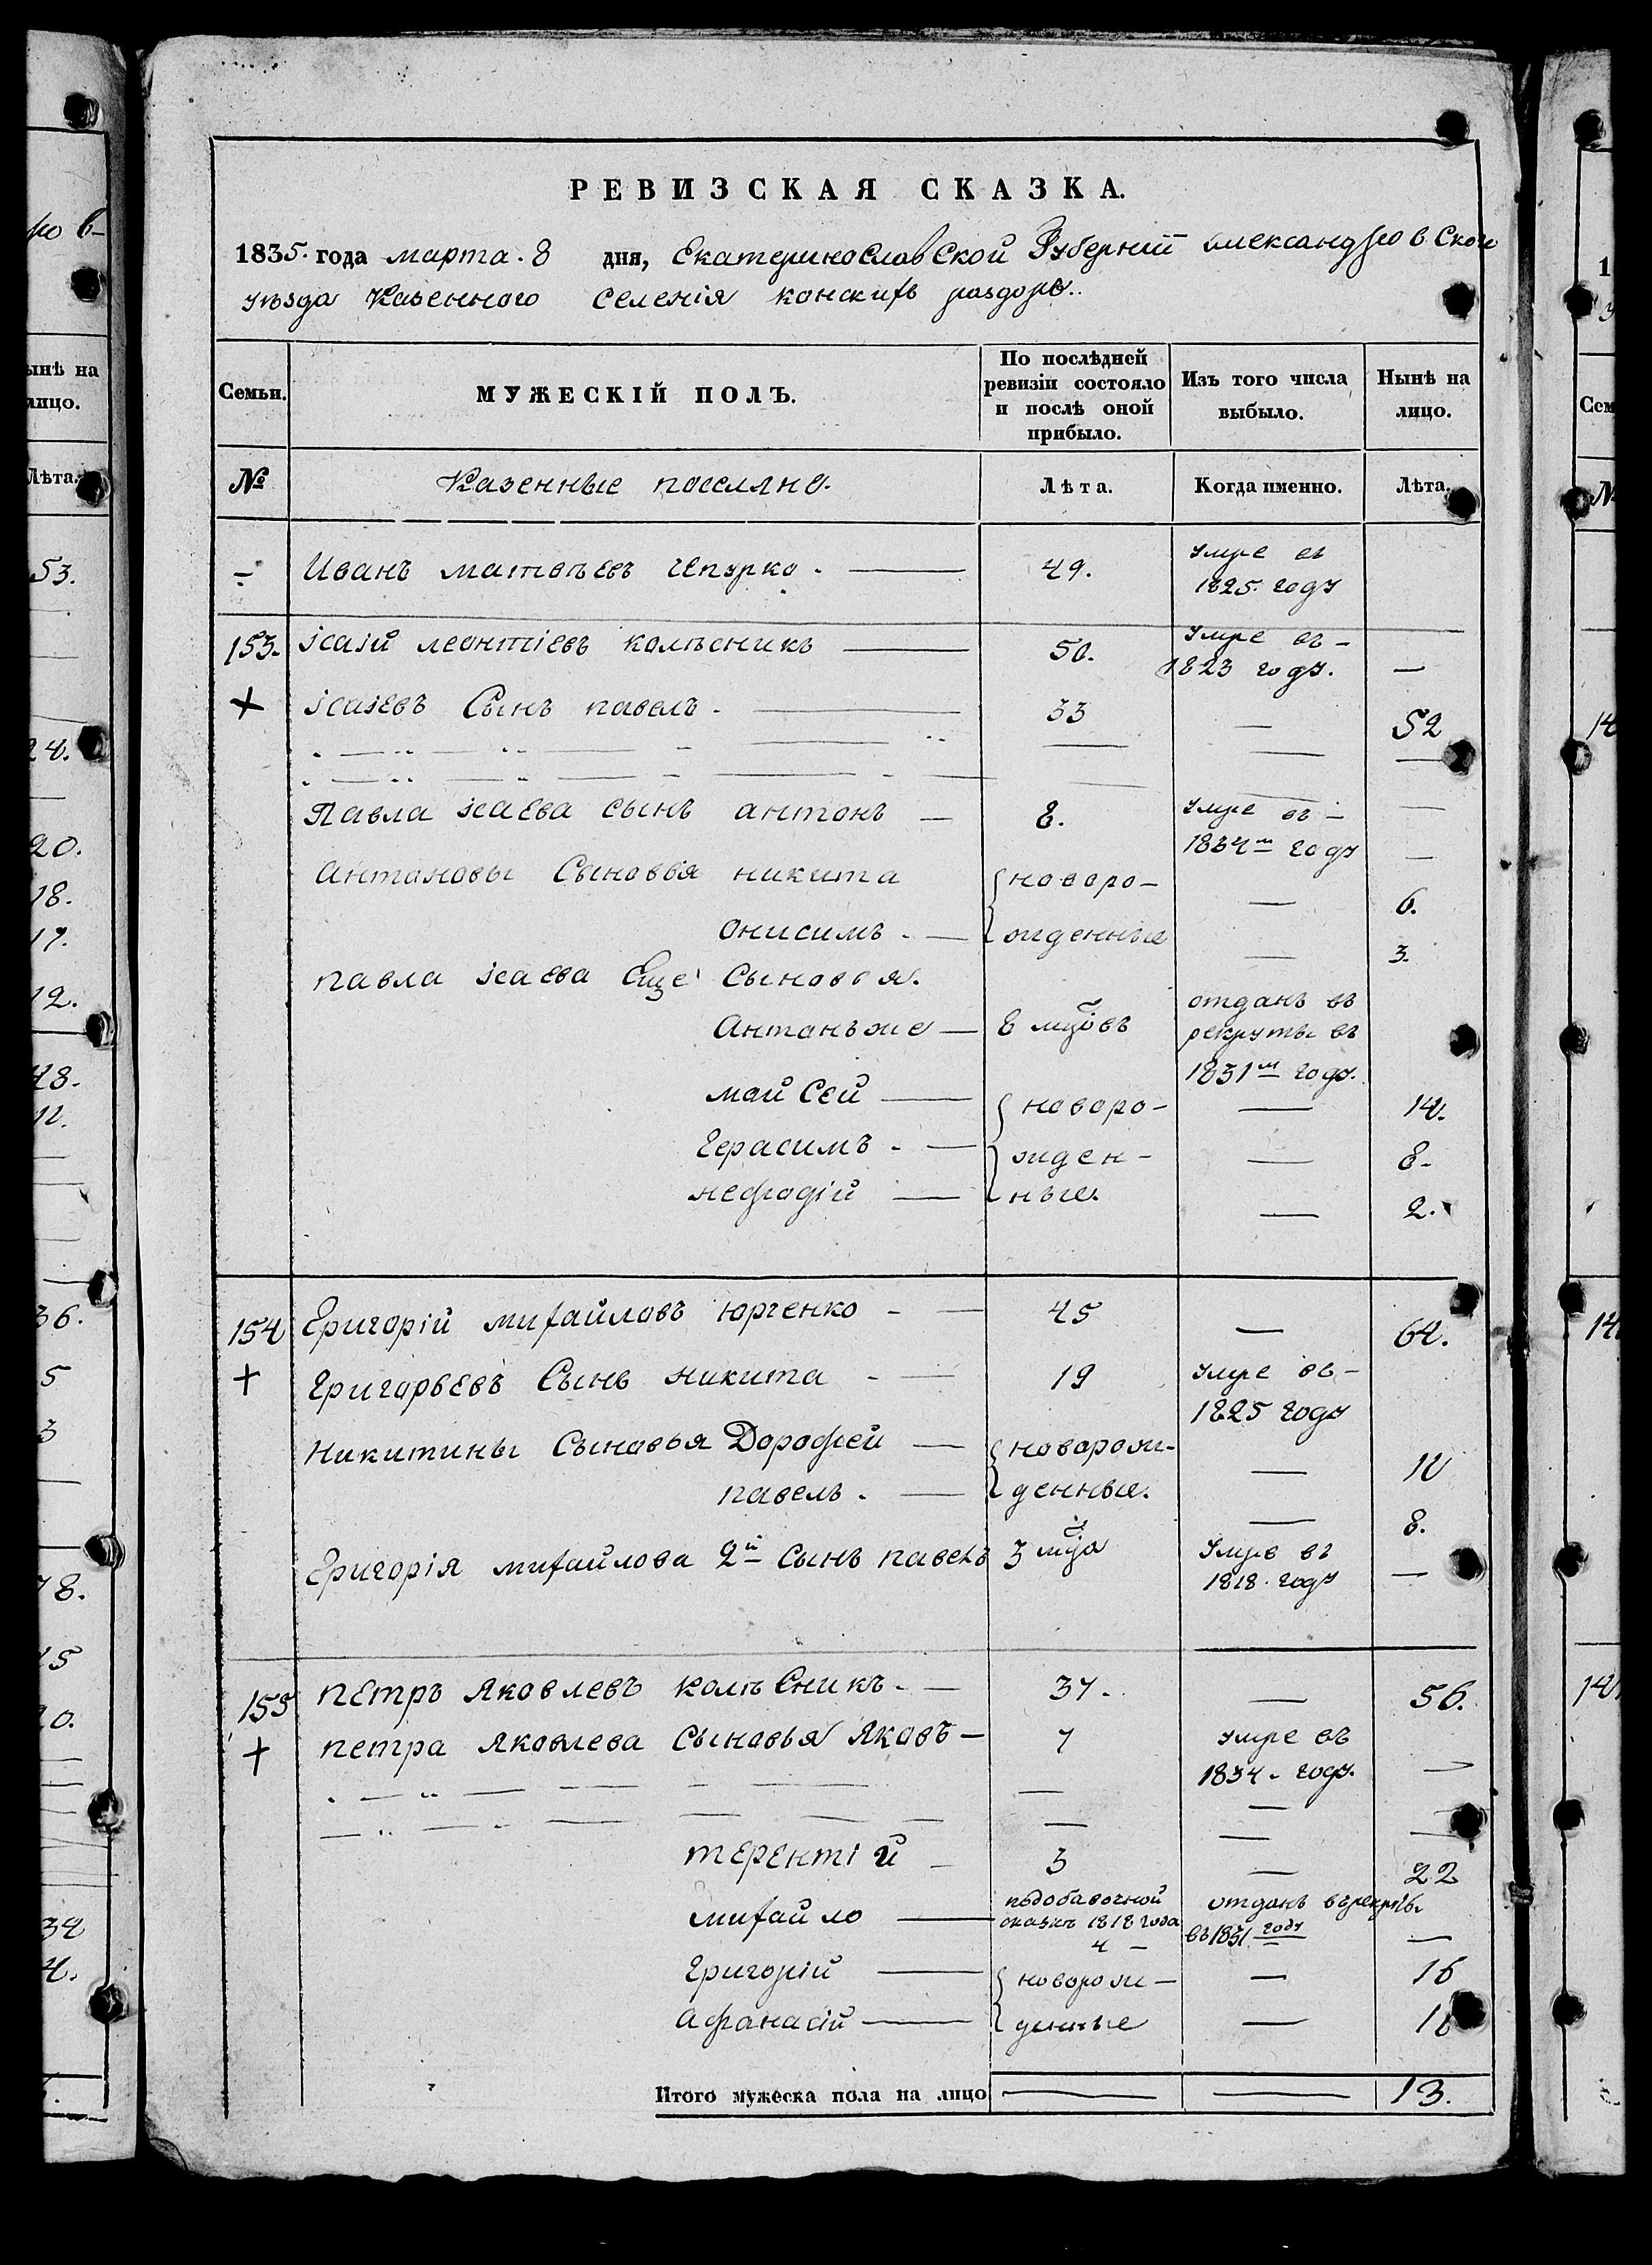 РЕВИЗСКАЯ СКАЗКА.
1835. года марта. 8 дня, Екатеринославской Губерніи Александровской
уѣзда Казенного селенія конскихъ раздоръ..
Семьи. МУЖЕСКІЙ ПОЛЪ. По послѣдней ревизіи состояло и послѣ оной прибыло. Изъ того числа выбыло. Нынѣ на лицо.
№ Казенные поселяно. Лѣта. Когда именно. Лѣта.
Иванъ матвѣевъ чепурко. — 49. умре въ
1825. году
153. ісаій леонтіевъ колѣсникъ — 50. умре въ —
1823 году. —
+ ісаіевъ Сынъ павелъ. — 33 — 52
Павла ісаева сынъ антонъ — 8. умре въ —
1834м году —
Антоновы Сыновья никита новоро— — 6.
Онисимъ. — жденные — 3.
павла ісаева Еще Сыновья.
Антонъ же — 8 мцовъ отданъ въ
рекруты въ
1831м году.
майсей — новоро— — 14.
Герасимъ. — жден— — 8.
мефодій — ные. — 2.
154 Григорій михайловъ юрченко — 45 — 64.
+ Григорьевъ Сынъ никита — 19 умре въ —
1825 году
Никитины Сыновья Дорофей — новорож— — 10
павелъ. — денные. — 8.
Григорія михайлова 2й Сынъ павелъ 3 мца умре въ
1818. году —
155 петръ Яковлевъ колѣсникъ. — 37. — 56.
+ петра Яковлева Сыновья Яковъ — 7 умре въ
1834. году. —
терентій — 3 — 22
михайло — подобавочной отданъ въ рекрутъ.
сказкѣ 1818 года въ 1831 году —
4 —
Григорій — новорож— — 16
афанасій — денные —
Итого мужеска пола на лицо — — 13.
ынѣ на
лицо.
Лѣта.
53.
20.
18.
17.
12.
36.
5
3
78.
15